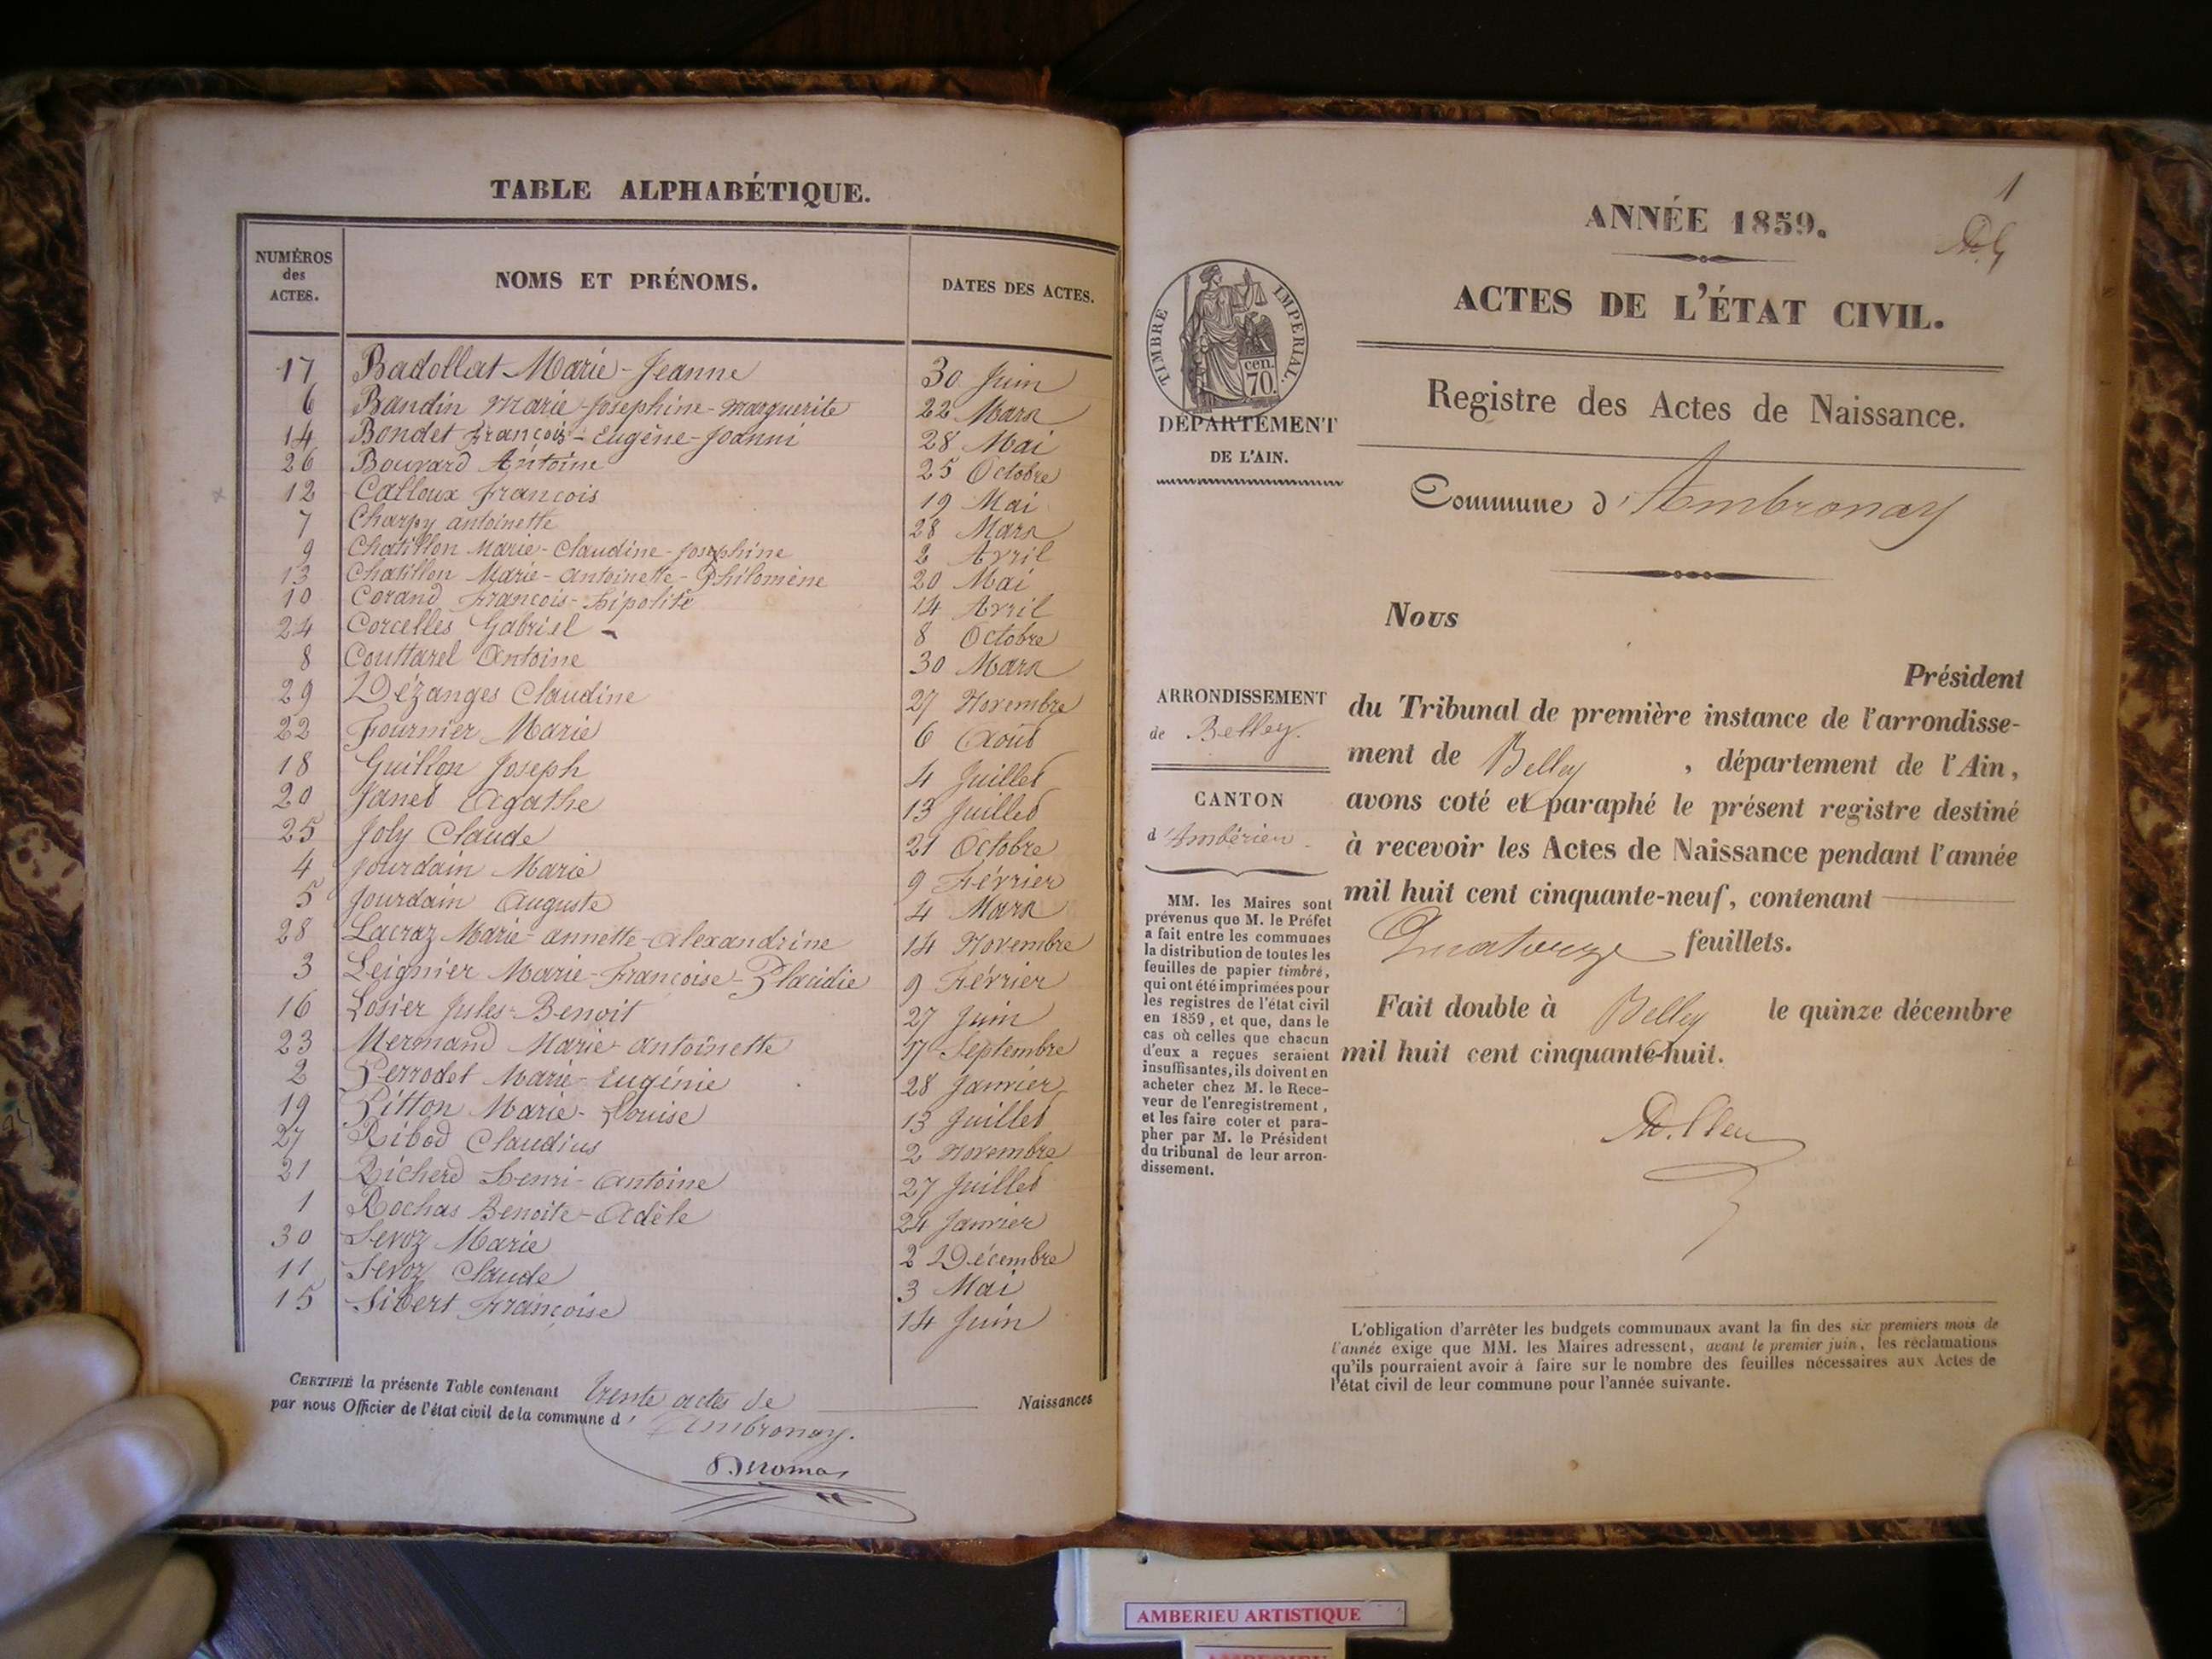 TABLE ALPHABÉTIQUE.
NUMÉROS des ACTES. NOMS ET PRÉNOMS. DATES DES ACTES.
17 Badollat Marie-Jeanne 30 Juin
6 Bandin Marie-Josephine-Marguerite 22 Mars
14 Bondet François-Eugène-Joanni 28 Mai
26 Bouvard Antoine 25 Octobre
12 Calloux François 19 Mai
7 Charpy antoinette 28 Mars
9 Chatillon Marie-Claudine-Josephine 2 Avril
13 Chatillon Marie-Antoinette-Philomène 20 Mai
10 Corand François-Hipolite 14 Avril
24 Corcelles Gabriel 8 Octobre
8 Couttarel Antoine 30 Mars
29 Dézanges Claudine 27 Novembre
22 Fournier Marie 6 Août
18 Guillon Joseph 4 Juillet
20 Janet Agathe 13 Juillet
25 Joly Claude 21 Octobre
4 Jourdain Marie 9 Février
5 Jourdain Auguste 4 Mars
28 Lacraz Marie-annette-Alexandrine 14 Novembre
3 Leignier Marie-Françoise-Placidie 9 Février
16 Losier Jules-Benoit 27 Juin
23 Mermand Marie-antoinette 17 Septembre
2 Perrodet Marie-Eugénie 28 Janvier
19 Pitton Marie-Louise 13 Juillet
27 Ribod Claudius 2 Novembre
21 Richerd Henri-Antoine 27 Juillet
1 Rochas Benoite-Adèle 24 Janvier
30 Sevoz Marie 2 Décembre
11 Sevoz Claude 3 Mai
15 Sibert Françoise 14 Juin
CERTIFIÉ la présente Table contenant trente actes de Naissances
par nous Officier de l'état civil de la commune d' Ambronay.
1
ANNÉE 1859.
ACTES DE L'ÉTAT CIVIL.
TIMBRE IMPERIAL.
70 cen.
DÉPARTEMENT
DE L'AIN.
Registre des Actes de Naissance.
Commune d'Ambronay
Nous
Président
ARRONDISSEMENT
de Belley.
CANTON
d'Ambérieu.
MM. les Maires sont
prévenus que M. le Préfet
a fait entre les communes
la distribution de toutes les
feuilles de papier timbré,
qui ont été imprimées pour
les registres de l'état civil
en 1859, et que, dans le
cas où celles que chacun
d'eux a reçues seraient
insuffisantes, ils doivent en
acheter chez M. le Rece-
veur de l'enregistrement,
et les faire coter et para-
pher par M. le Président
du tribunal de leur arron-
dissement.
du Tribunal de première instance de l'arrondisse-
ment de Belley , département de l'Ain,
avons coté et paraphé le présent registre destiné
à recevoir les Actes de Naissance pendant l'année
mil huit cent cinquante-neuf, contenant
Quatorze feuillets.
Fait double à Belley le quinze décembre
mil huit cent cinquante-huit.
L'obligation d'arrêter les budgets communaux avant la fin des six premiers mois de
l'année exige que MM. les Maires adressent, avant le premier juin, les réclamations
qu'ils pourraient avoir à faire sur le nombre des feuilles nécessaires aux Actes de
l'état civil de leur commune pour l'année suivante.
AMBERIEU ARTISTIQUE
AMBERIEU